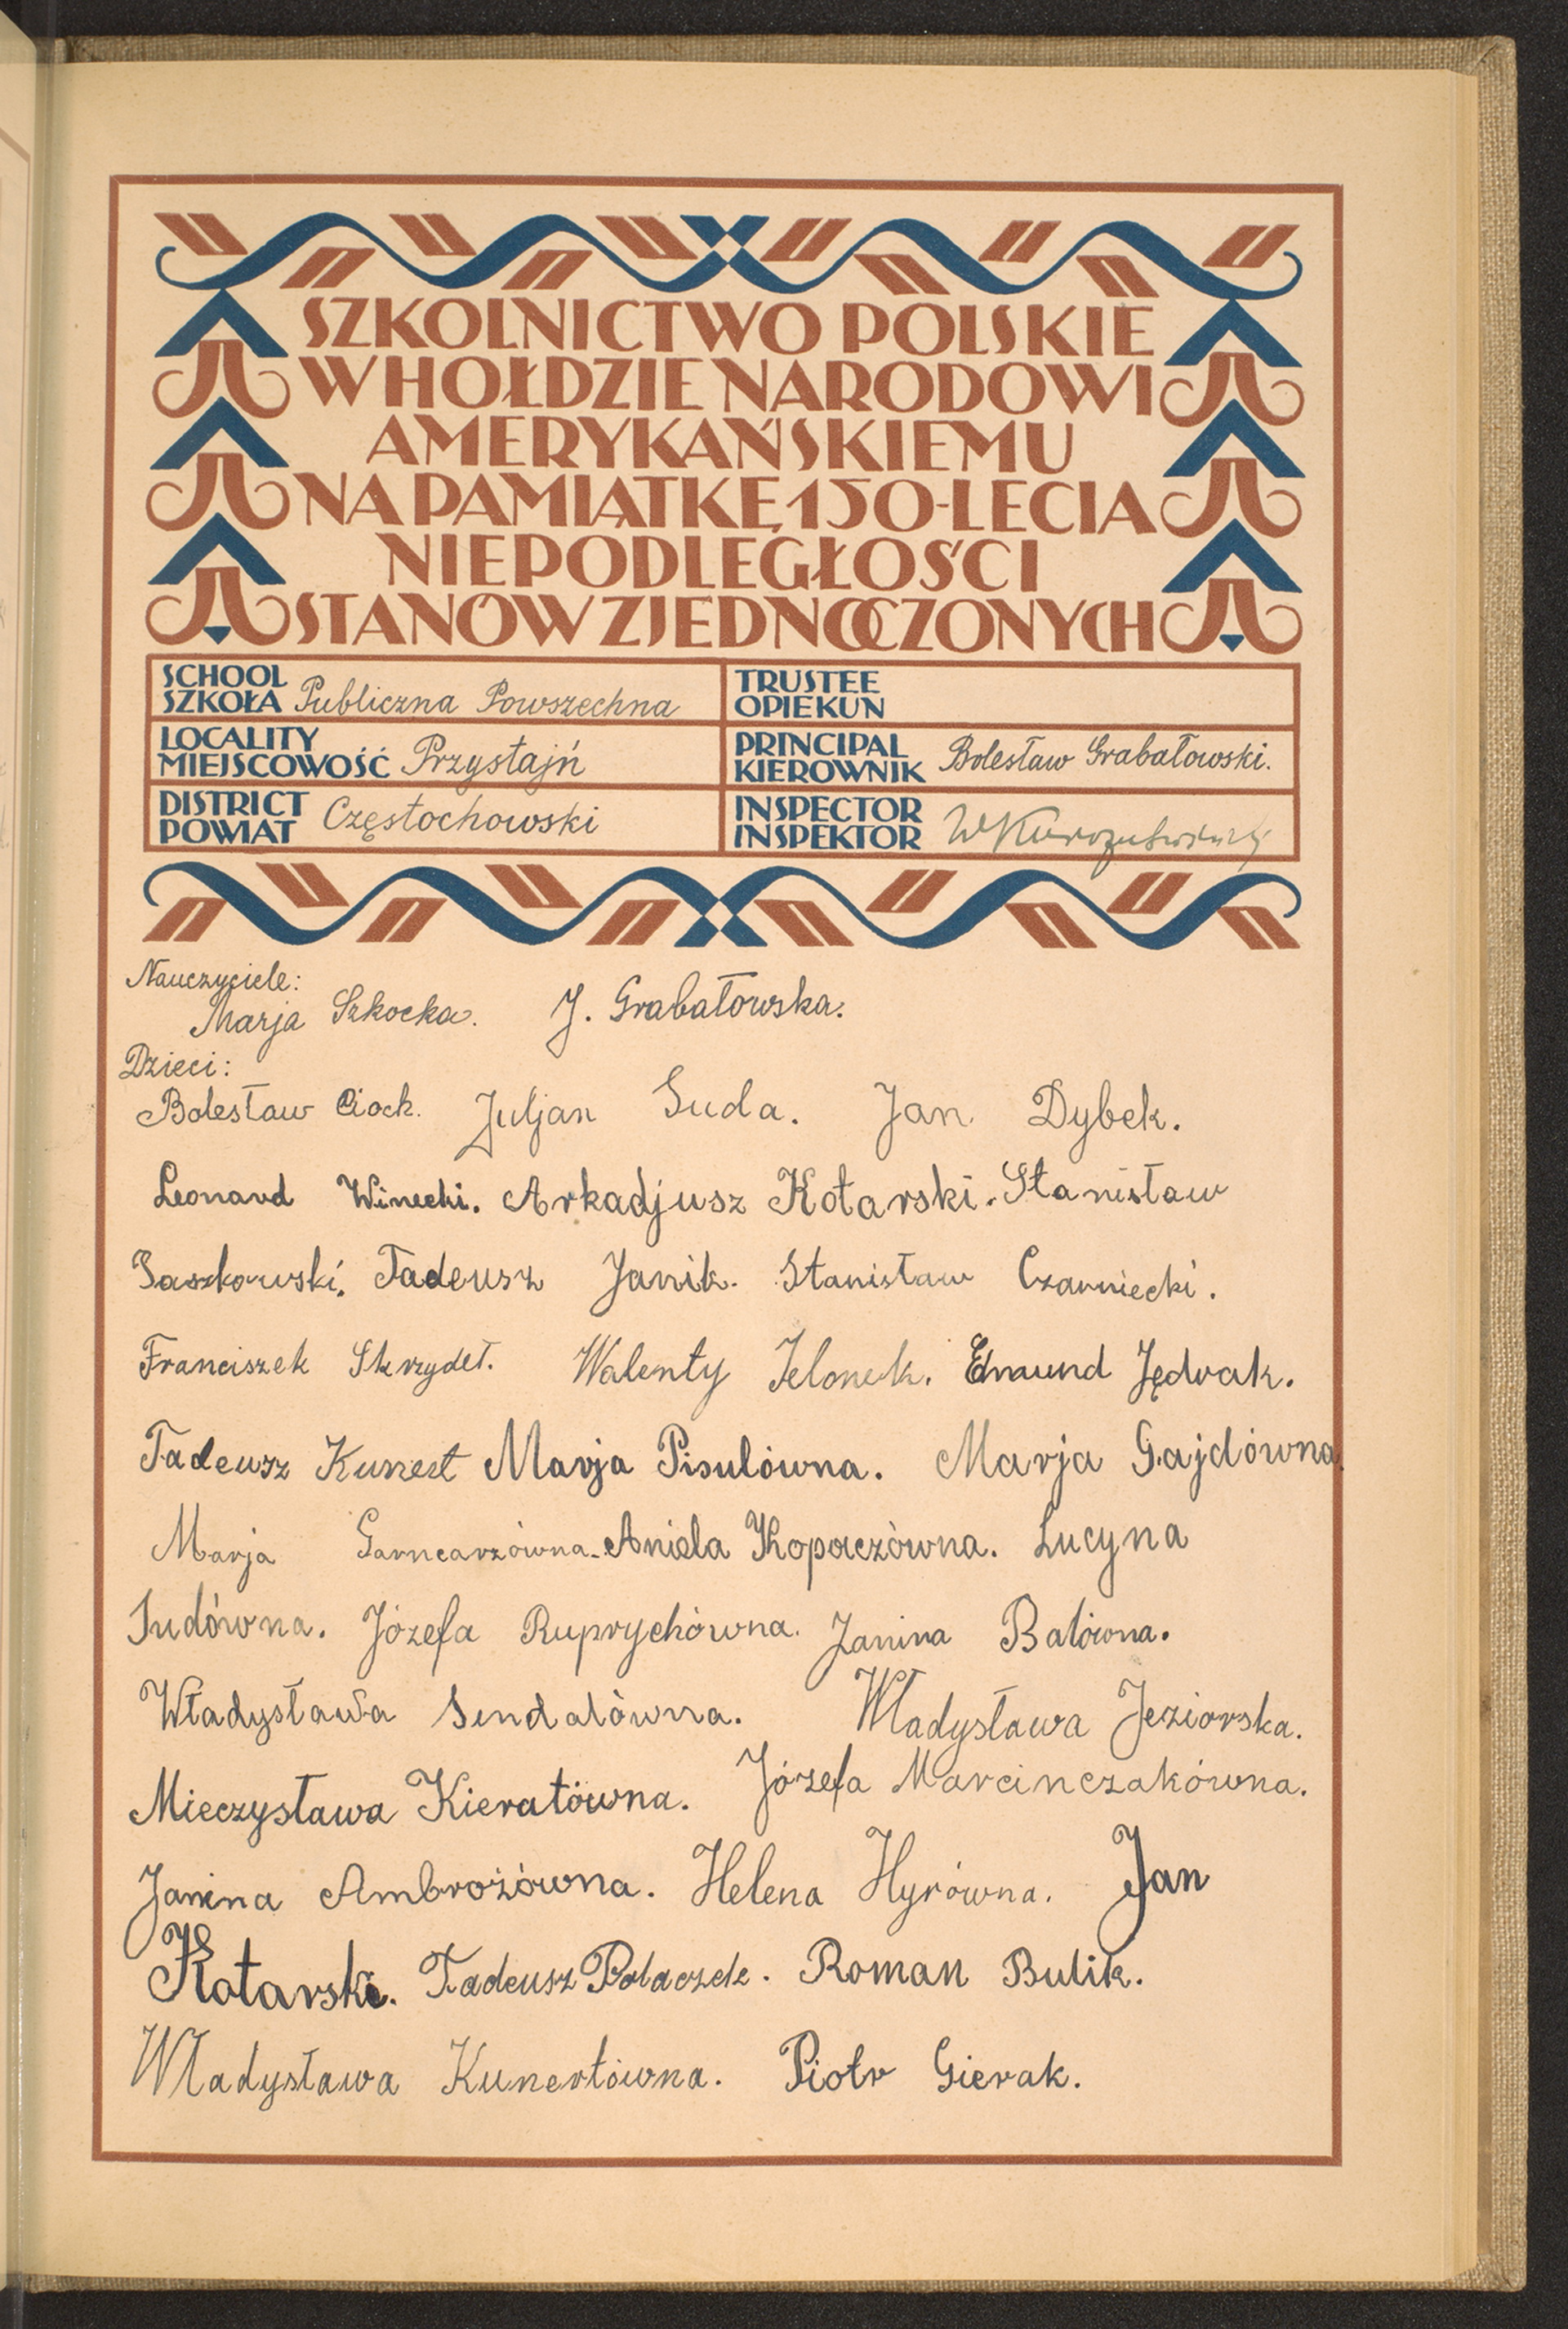 SZKOLNICTWO POLSKIE
W HOŁDZIE NARODOWI
AMERYKAŃSKIEMU
NA PAMIĄTKĘ 150-LECIA
NIEPODLEGŁOŚCI
STANÓW ZJEDNOCZONYCH
SCHOOL
SZKOŁA Publiczna Powszechna
LOCALITY
MIEJSCOWOŚĆ Przystajń
DISTRICT
POWIAT Częstochowski
TRUSTEE
OPIEKUN
PRINCIPAL
KIEROWNIK Bolesław Grabałowski.
INSPECTOR
INSPEKTOR
Nauczyciele:
Marja Szkocka. J. Grabałowska.
Dzieci:
Bolesław Ciock. Juljan Suda. Jan Dybek.
Leonard Winecki. Arkadjusz Kotarski. Stanisław
Saszkowski. Tadeusz Janik. Stanisław Czarniecki.
Franciszek Skrzydeł. Walenty Jelonek. Edmund Jędrak.
Tadeusz Kunert Marja Pisulówna. Marja Gajdówna.
Marja Garncarzówna. Aniela Kopaczówna. Lucyna
Sudówna. Józefa Ruprychówna. Janina Balówna.
Władysława Sendalówna. Władysława Jeziorska.
Mieczysława Kieratówna. Józefa Marcinczakówna.
Janina Ambrożówna. Helena Hyrówna. Jan
Kotarski. Tadeusz Polaczek. Roman Bulik.
Władysława Kunertówna. Piotr Gierak.